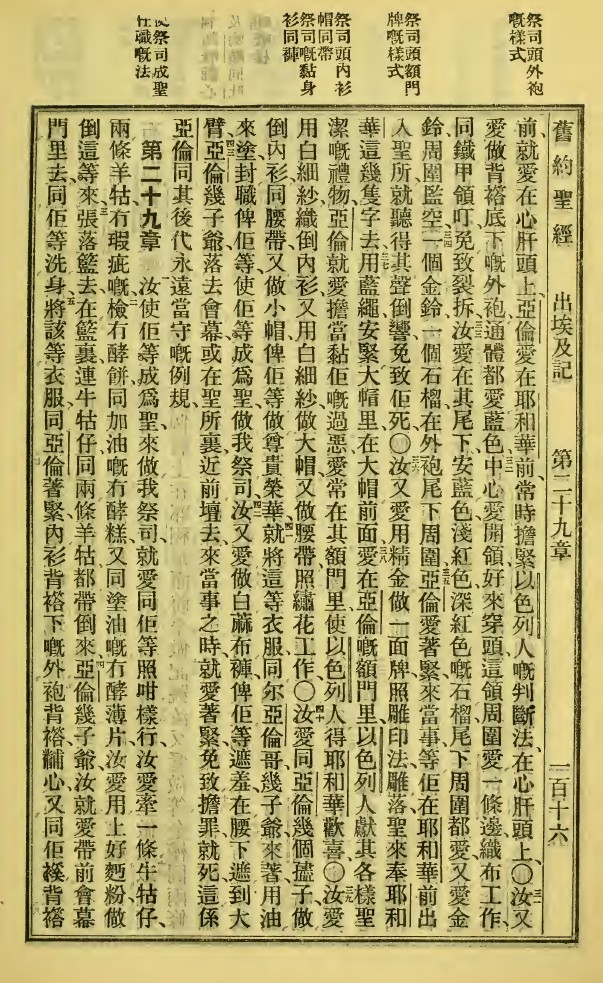 祭司頭外袍
嘅樣式
祭司頭額門
牌嘅樣式
祭司頭內衫
帽同帶
祭司嘅黏身
衫同褲
使祭司成聖
任職嘅法
舊約聖經 出埃及記 第二十九章 一百十六
前、就愛在心肝頭上、亞倫愛在耶和華前、常時擔緊以色列人嘅判斷法、在心肝頭上、〇三一汝又
愛做背褡底下嘅外袍、通體都愛藍色、三二中心愛開領、好來穿頭、這領周圍愛一條邊、織布工作、
同鐵甲領叮、免致裂拆、三三汝愛在其尾下、安藍色淺紅色深紅色嘅石榴、尾下周圍都愛、又愛金
鈴周圍監空、三四一個金鈴一個石榴、在外袍尾下周圍、三五亞倫愛著緊來當事、等佢在耶和華前出
入聖所、就聽得其聲倒響、免致佢死、〇三六汝又愛用精金做一面牌、照雕印法雕落、聖來奉耶和
華、這幾隻字去、三七用藍繩安緊大帽里、在大帽前面、三八愛在亞倫嘅額門里、以色列人獻其各樣聖
潔嘅禮物、亞倫就愛擔當黏佢嘅過惡、愛常在其額門里、使以色列人得耶和華歡喜、〇三九汝愛
用白細紗織倒內衫、又用白細紗做大帽、又做腰帶、照繡花工作、〇四十汝愛同亞倫幾個孻子、做
倒內衫同腰帶、又做小帽俾佢等、做尊貴榮華、四一就將這等衣服、同尔亞倫哥幾子爺來著、用油
來塗、封職俾佢等、使佢等成爲聖、做我祭司、四二汝又愛做白蔴布褲俾佢等遮羞、在腰下遮到大
臂、四三亞倫幾子爺落去會幕、或在聖所裏近前壇去來當事之時、就愛著緊、免致擔罪就死、這係
亞倫同其後代永遠當守嘅例規、
第二十九章 汝使佢等成爲聖、來做我祭司、就愛同佢等照咁樣行、汝愛牽一條牛牯仔、
兩條羊牯、冇瑕疵嘅、二檢冇酵餅、同加油嘅冇酵糕、又同塗油嘅冇酵薄片、汝愛用上好麪粉做
倒這等來、三張落籃去、在籃裏連牛牯仔同兩條羊牯都帶倒來、四亞倫幾子爺、汝就愛帶前會幕
門里去、同佢等洗身、五將該等衣服、同亞倫著緊內衫、背褡下嘅外袍、背褡、黼心、又同佢襚背褡